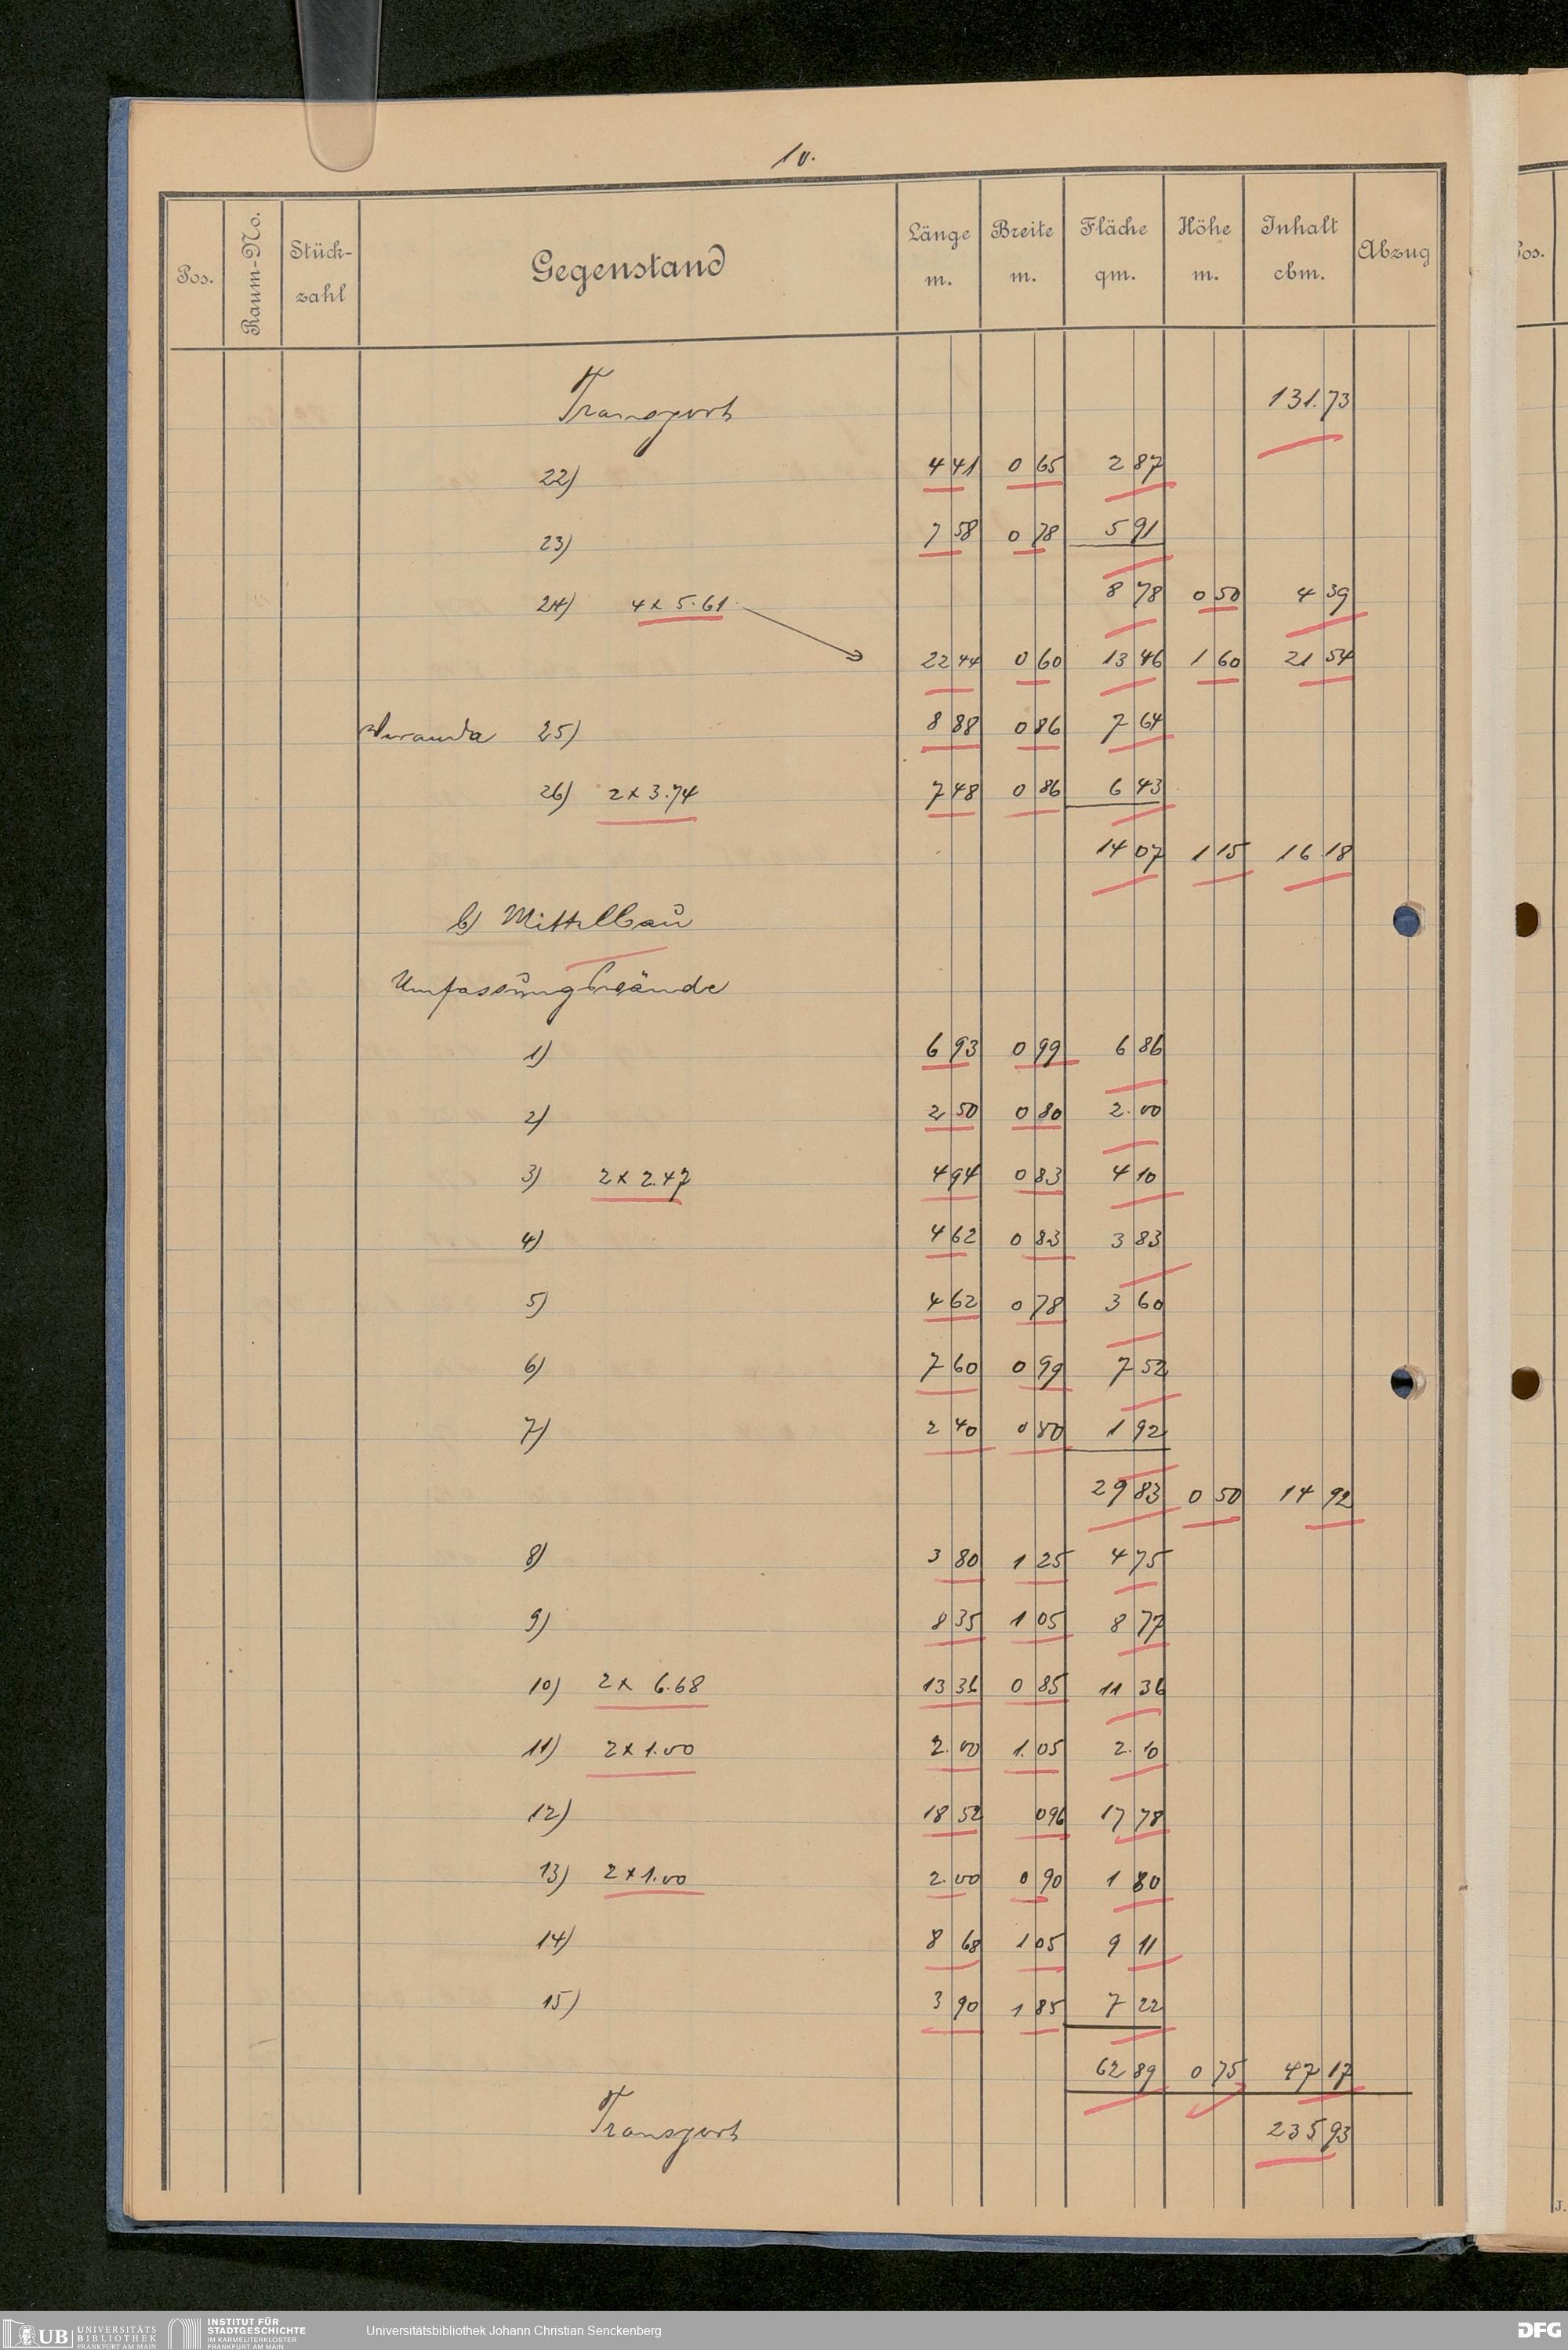 10.
Pos. Raum-No. Stück-zahl Gegenstand Länge m. Breite m. Fläche qm. Höhe m. Inhalt cbm. Abzug
Transport 131.73
22) 4 41 0 65 2 87
23) 7 58 0 78 5 91
8 78 0 50 4 39
24) 4 x 5.61
22 44 0 60 13 46 1 60 21 54
Veranda 25) 8 88 0 86 7 64
26) 2 x 3.74 7 48 0 86 6 43
14 07 1 15 16 18
b) Mittelbau
Umfassungswände
1) 6 93 0 99 6 86
2) 2 50 0 80 2.00
3) 2 x 2.47 4 94 0 83 4 10
4) 4 62 0 83 3 83
5) 4 62 0 78 3 60
6) 7 60 0 99 7 52
7) 2 40 0 80 1 92
29 83 0 50 14 92
8) 3 80 1 25 4 75
9) 8 35 1 05 8 77
10) 2 x 6.68 13 36 0 85 11 36
11) 2 x 1.00 2.00 1.05 2.10
12) 18 52 0 96 17 78
13) 2 x 1.00 2.00 0 90 1 80
14) 8 68 1 05 9 11
15) 3 90 1 85 7 22
62 89 0 75 47 17
Transport 235 93
Pos.
J.
UB UNIVERSITÄTS BIBLIOTHEK FRANKFURT AM MAIN
INSTITUT FÜR STADTGESCHICHTE IM KARMELITERKLOSTER FRANKFURT AM MAIN
Universitätsbibliothek Johann Christian Senckenberg
DFG